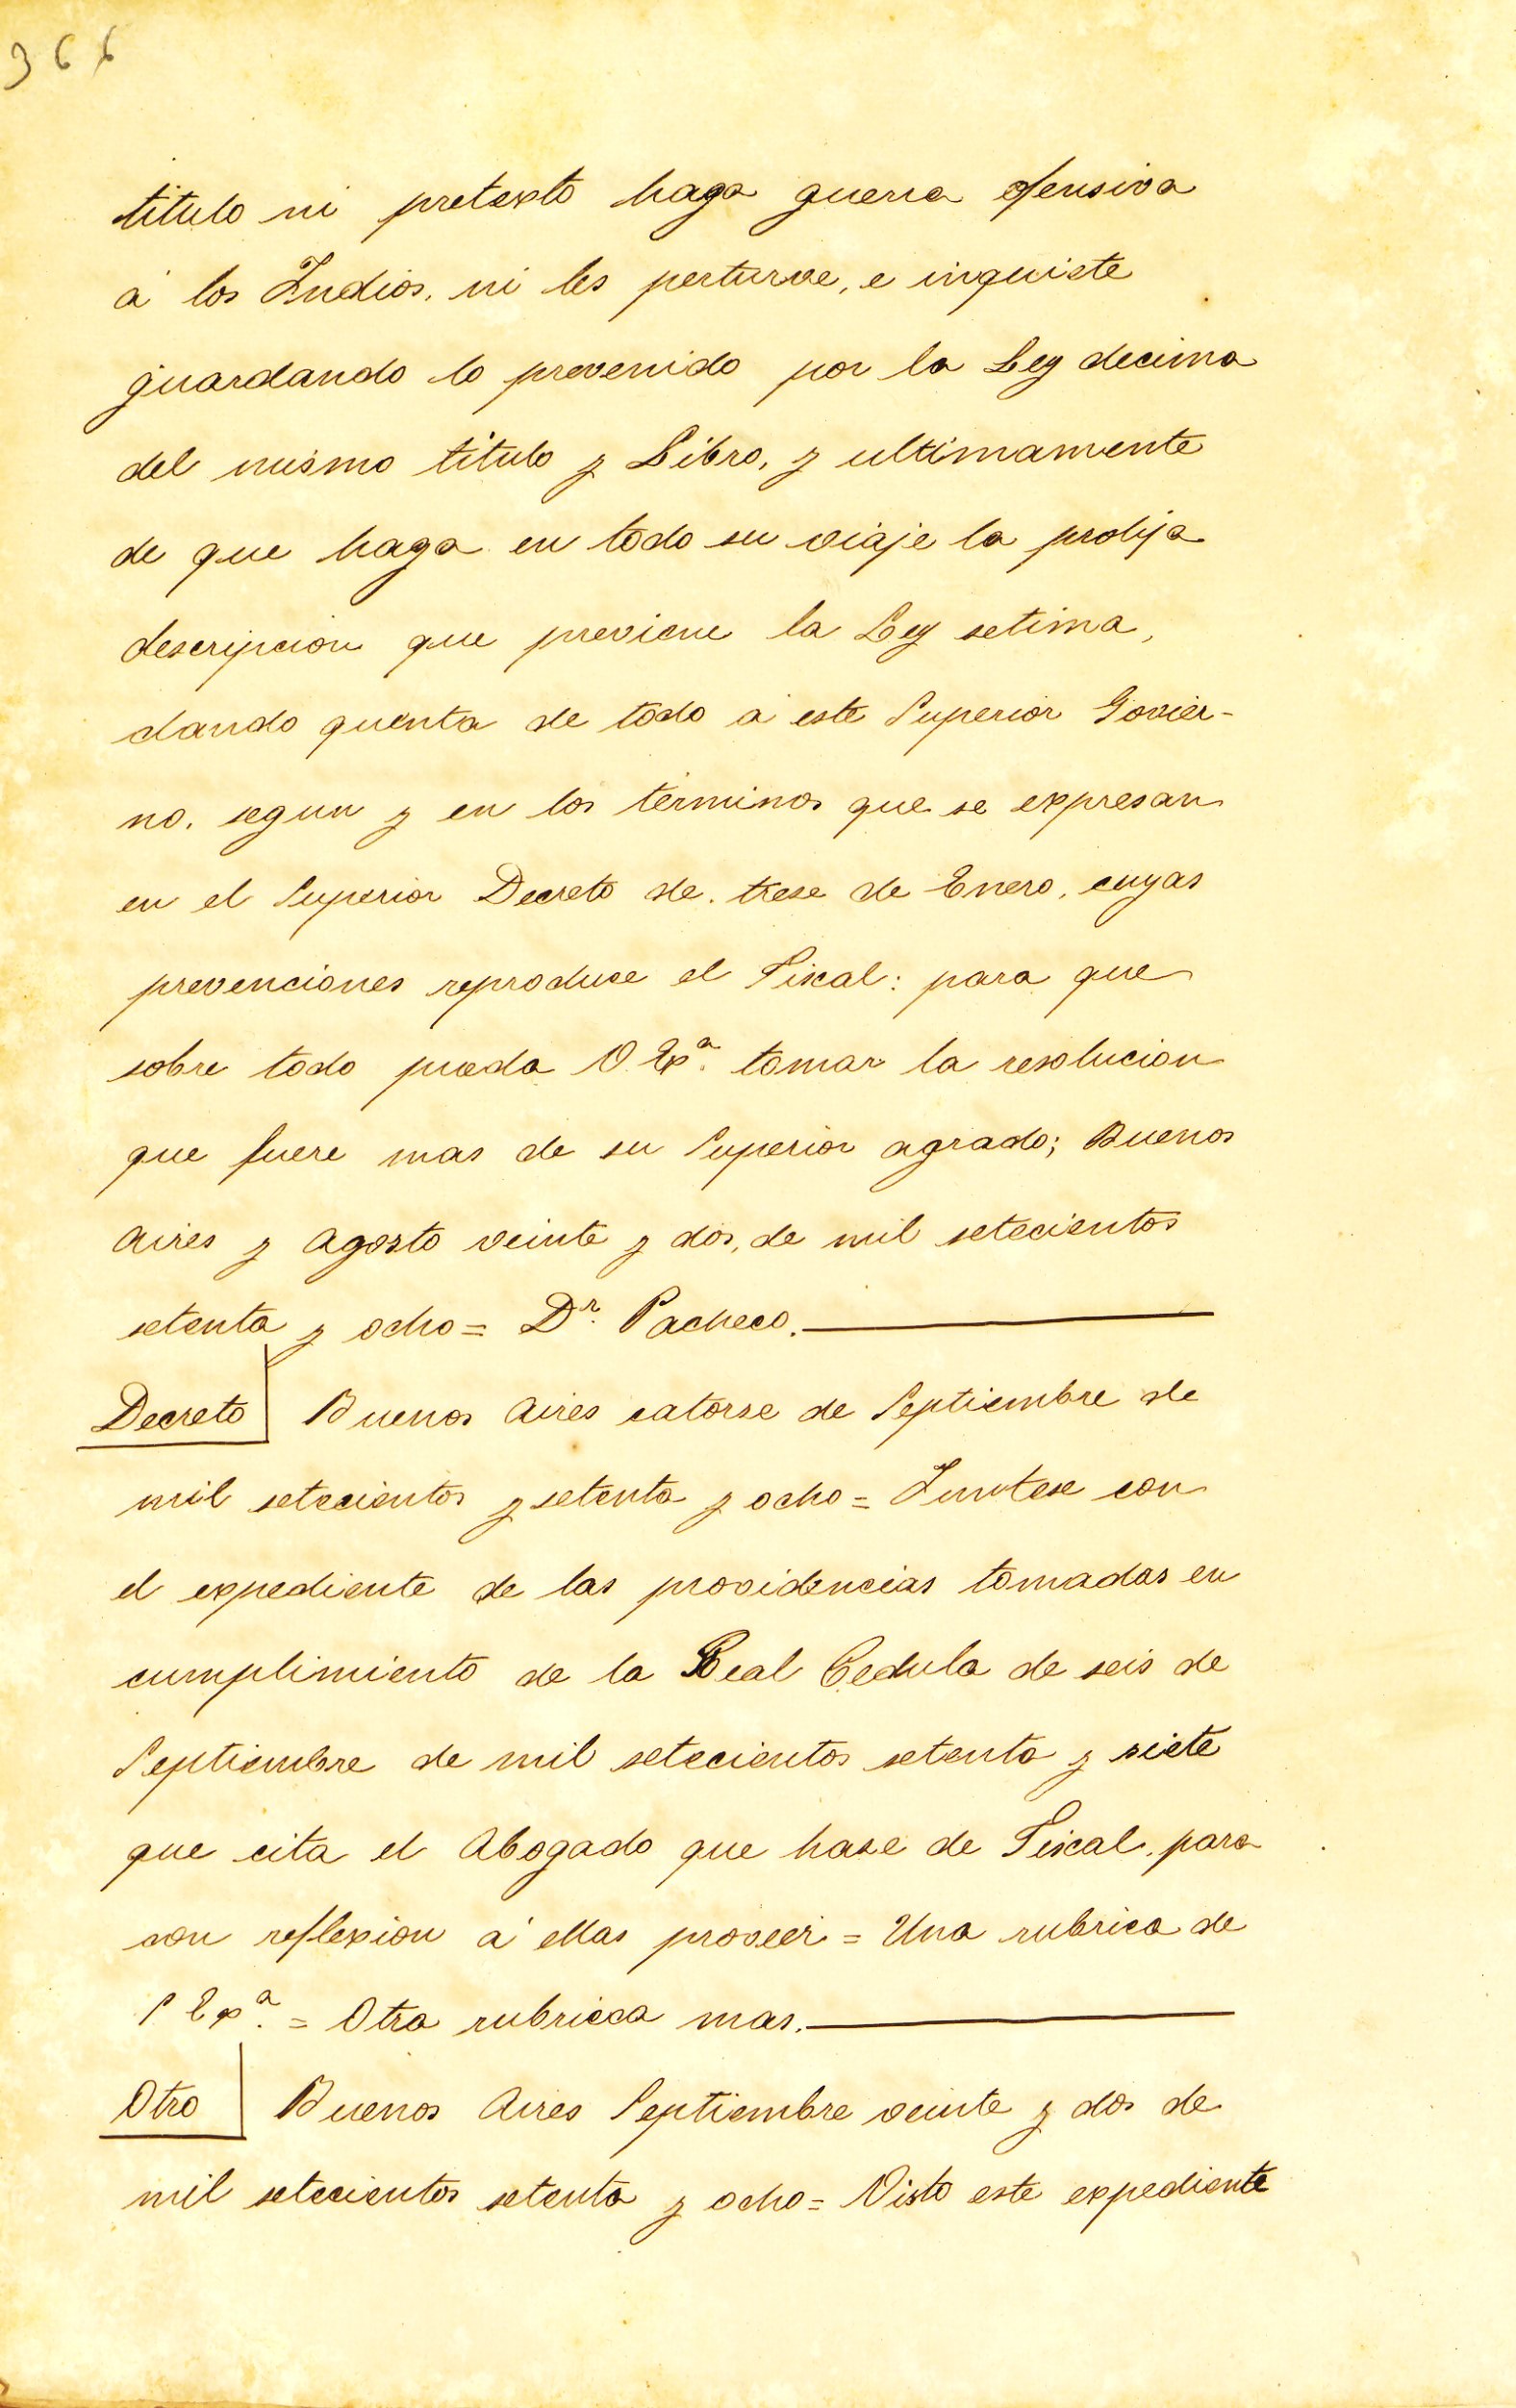 366
titulo ni pretexto haga guerra ofensiva
á los Indios, ni les perturve, e inquiete
guardando lo prevenido por la Ley decima
del mismo titulo y Libro, y ultimamente
de que haga en todo su viaje la prolija
descripcion que previene la Ley setima,
dando quenta de todo á este Superior Govier-
no, segun y en los términos que se expresan
en el Superior Decreto de trese de Enero, cuyas
prevenciones reproduse el Fiscal: para que
sobre todo pueda V. Exª. tomar la resolucion
que fuere mas de su Superior agrado; Buenos
Aires y Agosto veinte y dos, de mil setecientos
setenta y ocho = Dr. Pacheco.
Decreto Buenos Aires catorse de Septiembre de
mil setecientos y setenta y ocho = Juntese con
el expediente de las providencias tomadas en
cumplimiento de la Real Cedula de seis de
Septiembre de mil setecientos setenta y siete
que cita el Abogado que hase de Fiscal, para
con reflexion á ellas proveér = Una rubrica de
S Exª. = Otra rubricca mas.
Otro Buenos Aires Septiembre veinte y dos de
mil setecientos setenta y ocho = Visto este expediente